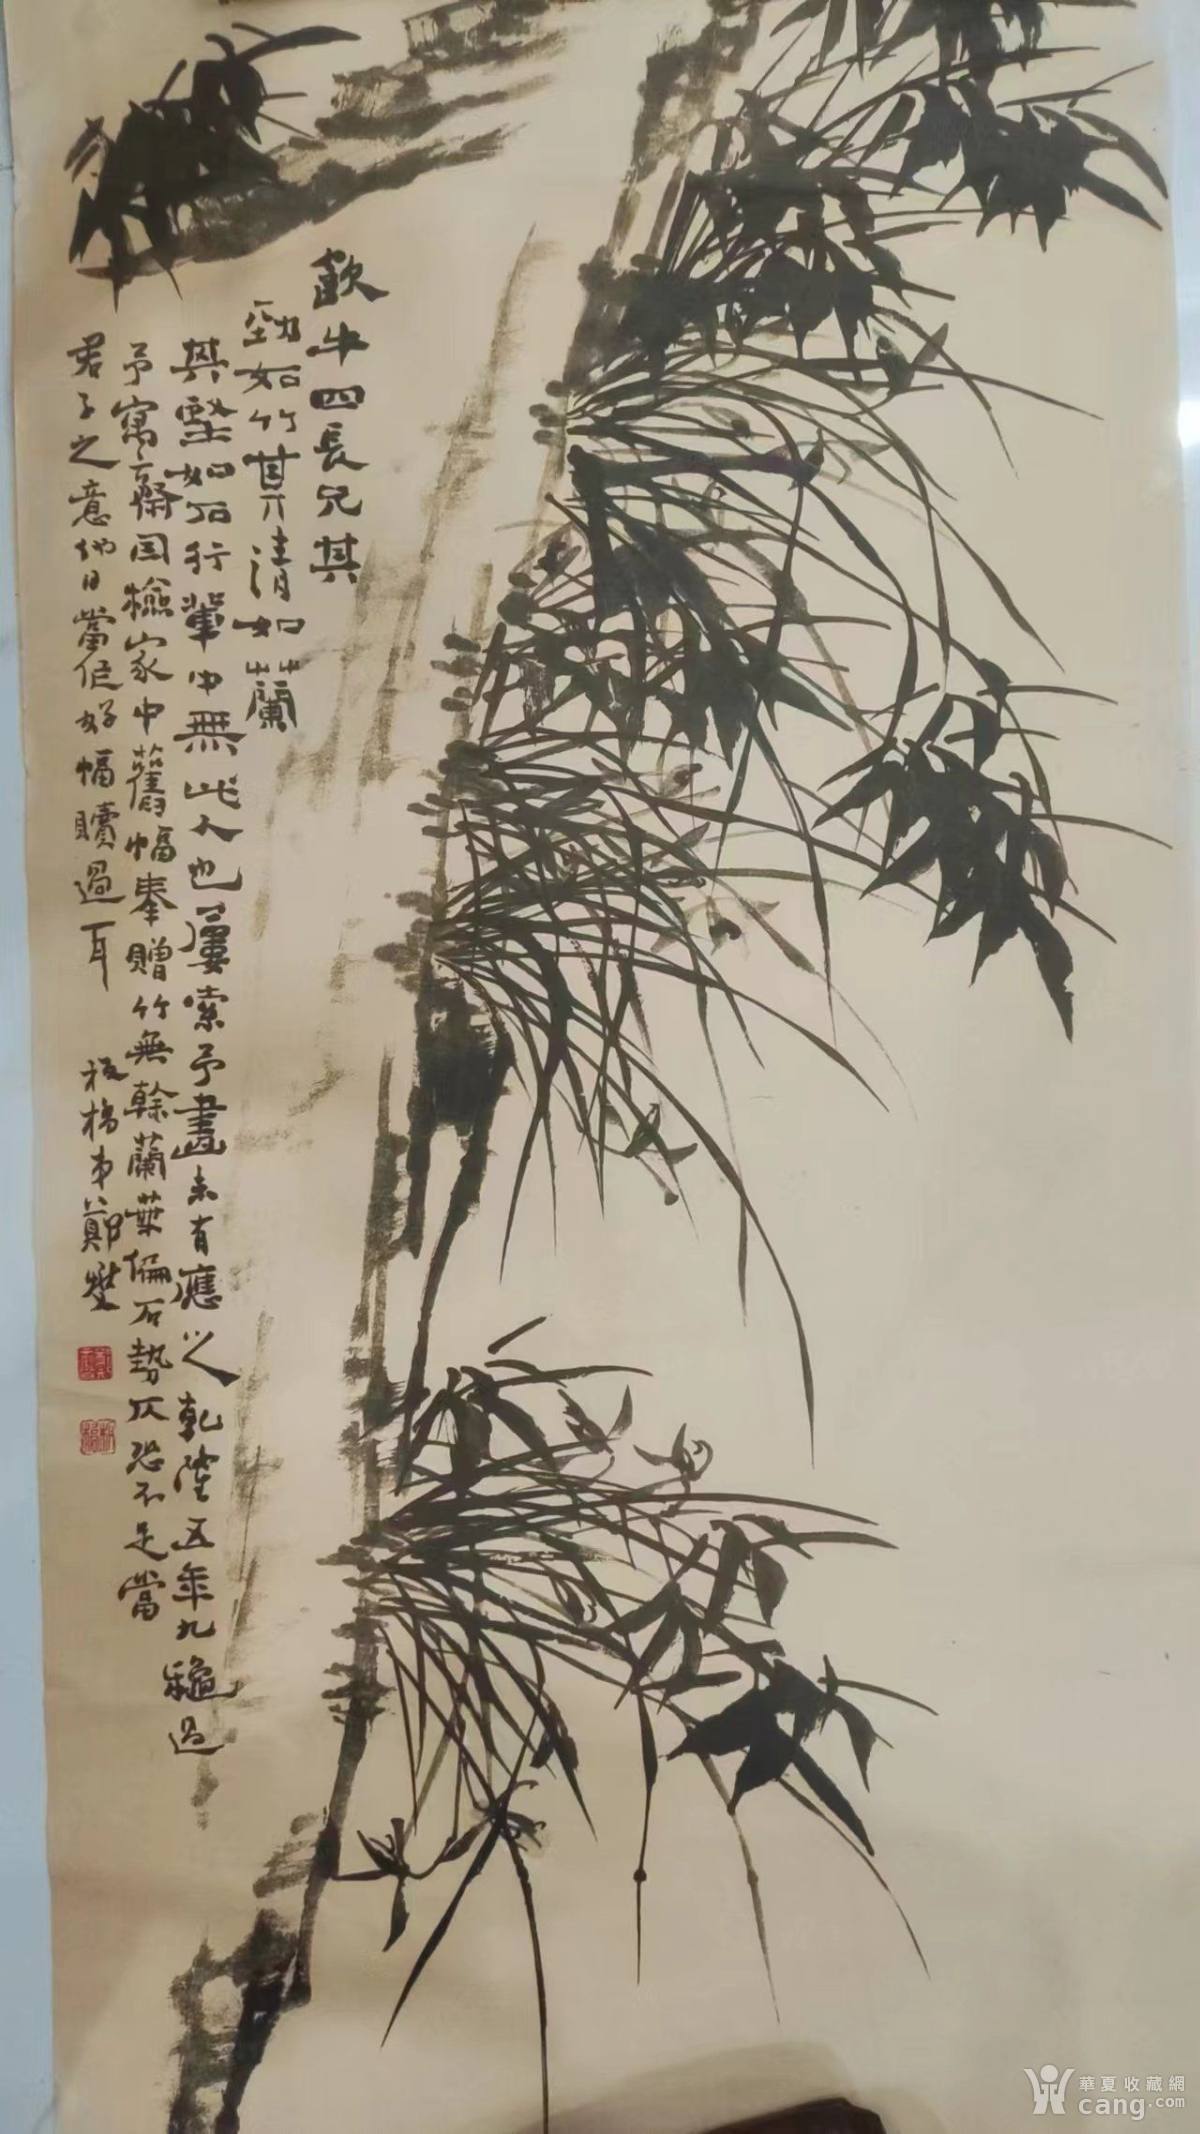 歙牛四長兄其
勁如竹其清如蘭
其堅如石行輩中無此人也屢索予畫未有應之乾隆五年九龝過
予寓齋因檢家中舊幅奉贈竹無榦蘭葉偏石勢仄恐不足當
君子之意他日當作好幅贖過耳 板橋弟鄭燮
華夏收藏網
cang.com